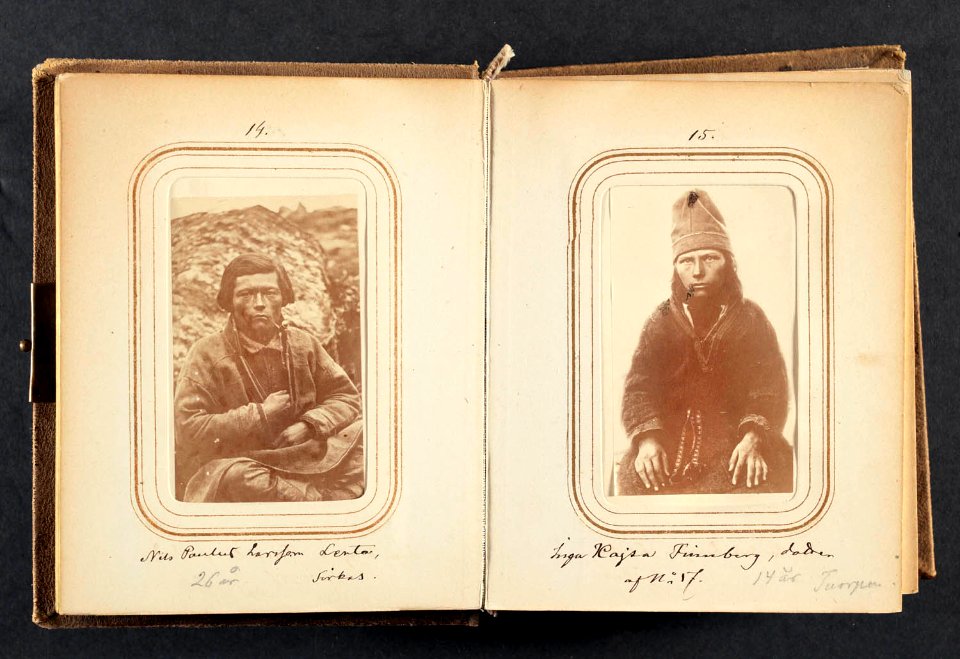 14.
Nils Paulus Larsson Lenta,
26 år Sirkas.
15.
Inga Kajsa Finnberg, dotter
af Nº 57. 14 år Tuorpon.